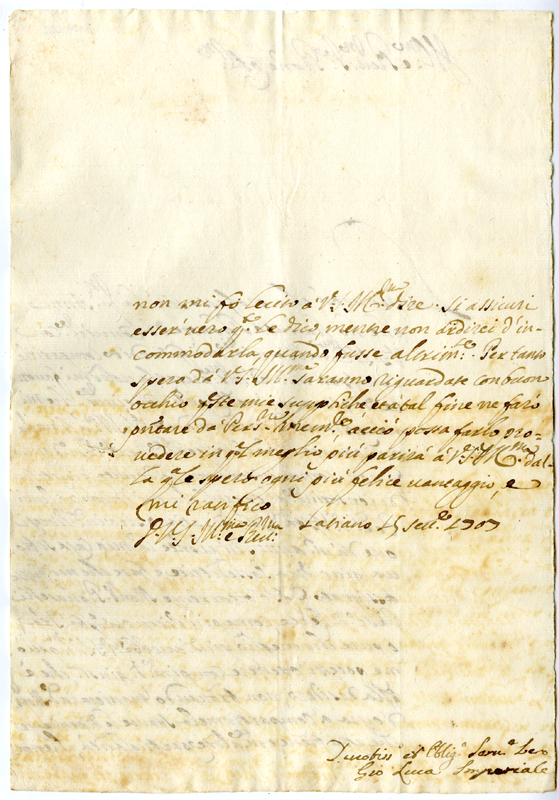 non mi fò lecito à V.S. Ill.ma dire. Si assicuri
esser vero q.to Le dico, mentre non ardirei d'in-
commodarla quando fusse altrim.te. Per tanto
spero dà V.S. Ill.ma saranno riguardate con buon
occhio q.ste mie suppliche et à tal fine ne farò
portare da Pers.na acciò possa farlo pro-
vedere in q.l meglio più parirà à V.S. Ill.ma dal-
la q.le spero ogni più felice vantaggio, e
mi ratifico
D. V.S. Ill.ma e Rev.ma Latiano 15 Sett.e 1707
Devotiss.o et Oblig.o Serv.e
Gio Luca Imperiale